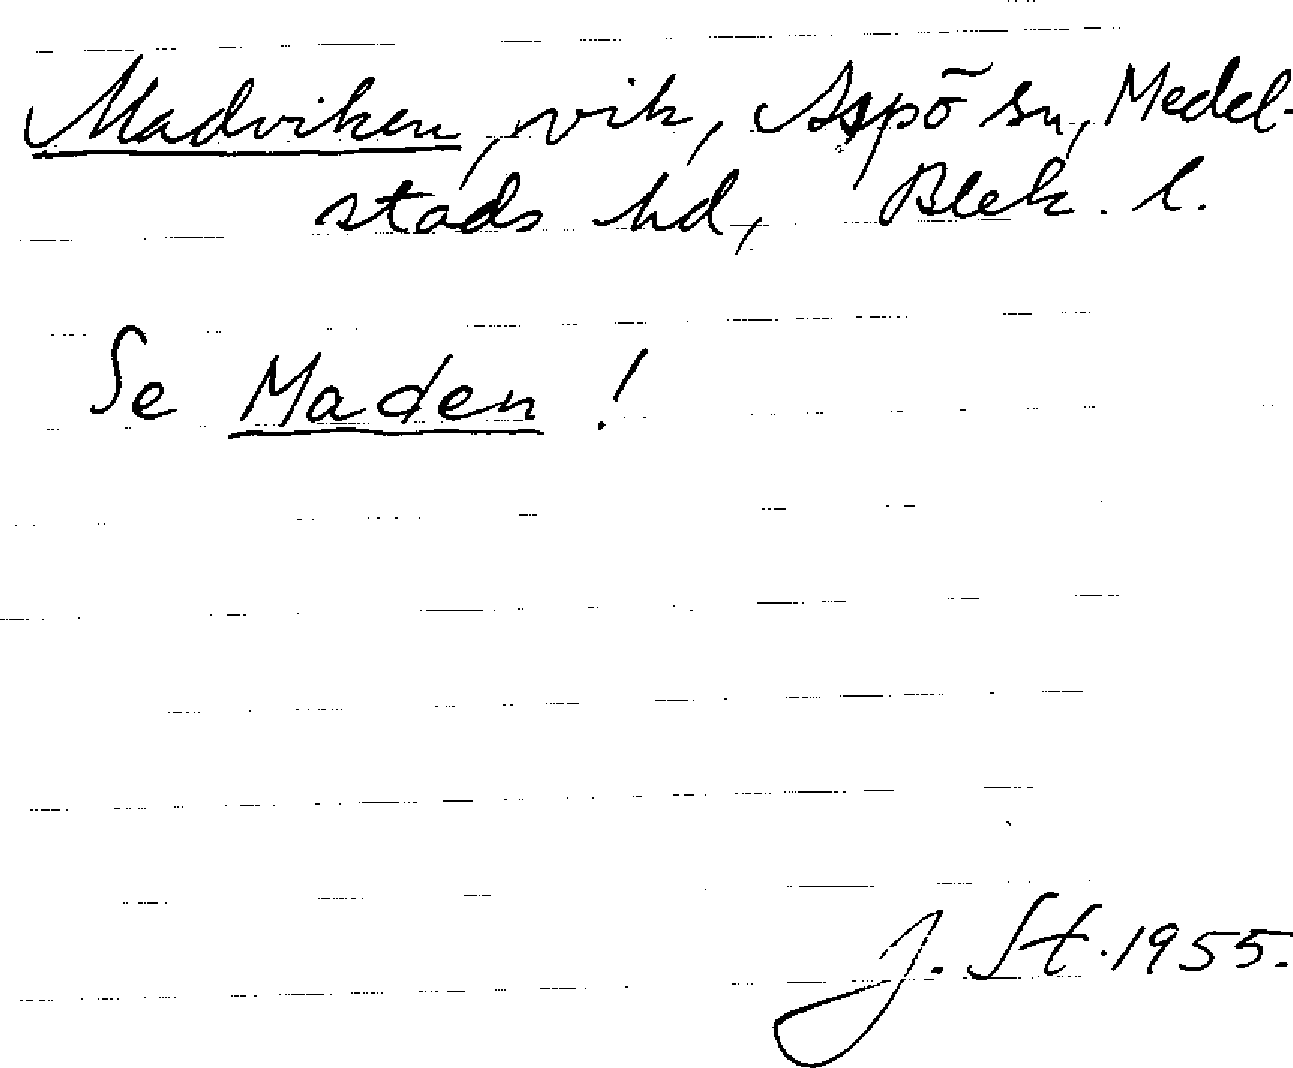 Madviken, vik, Aspö sn, Medel-
stads hd, Blek. l.
Se Maden!
J. St. 1955.